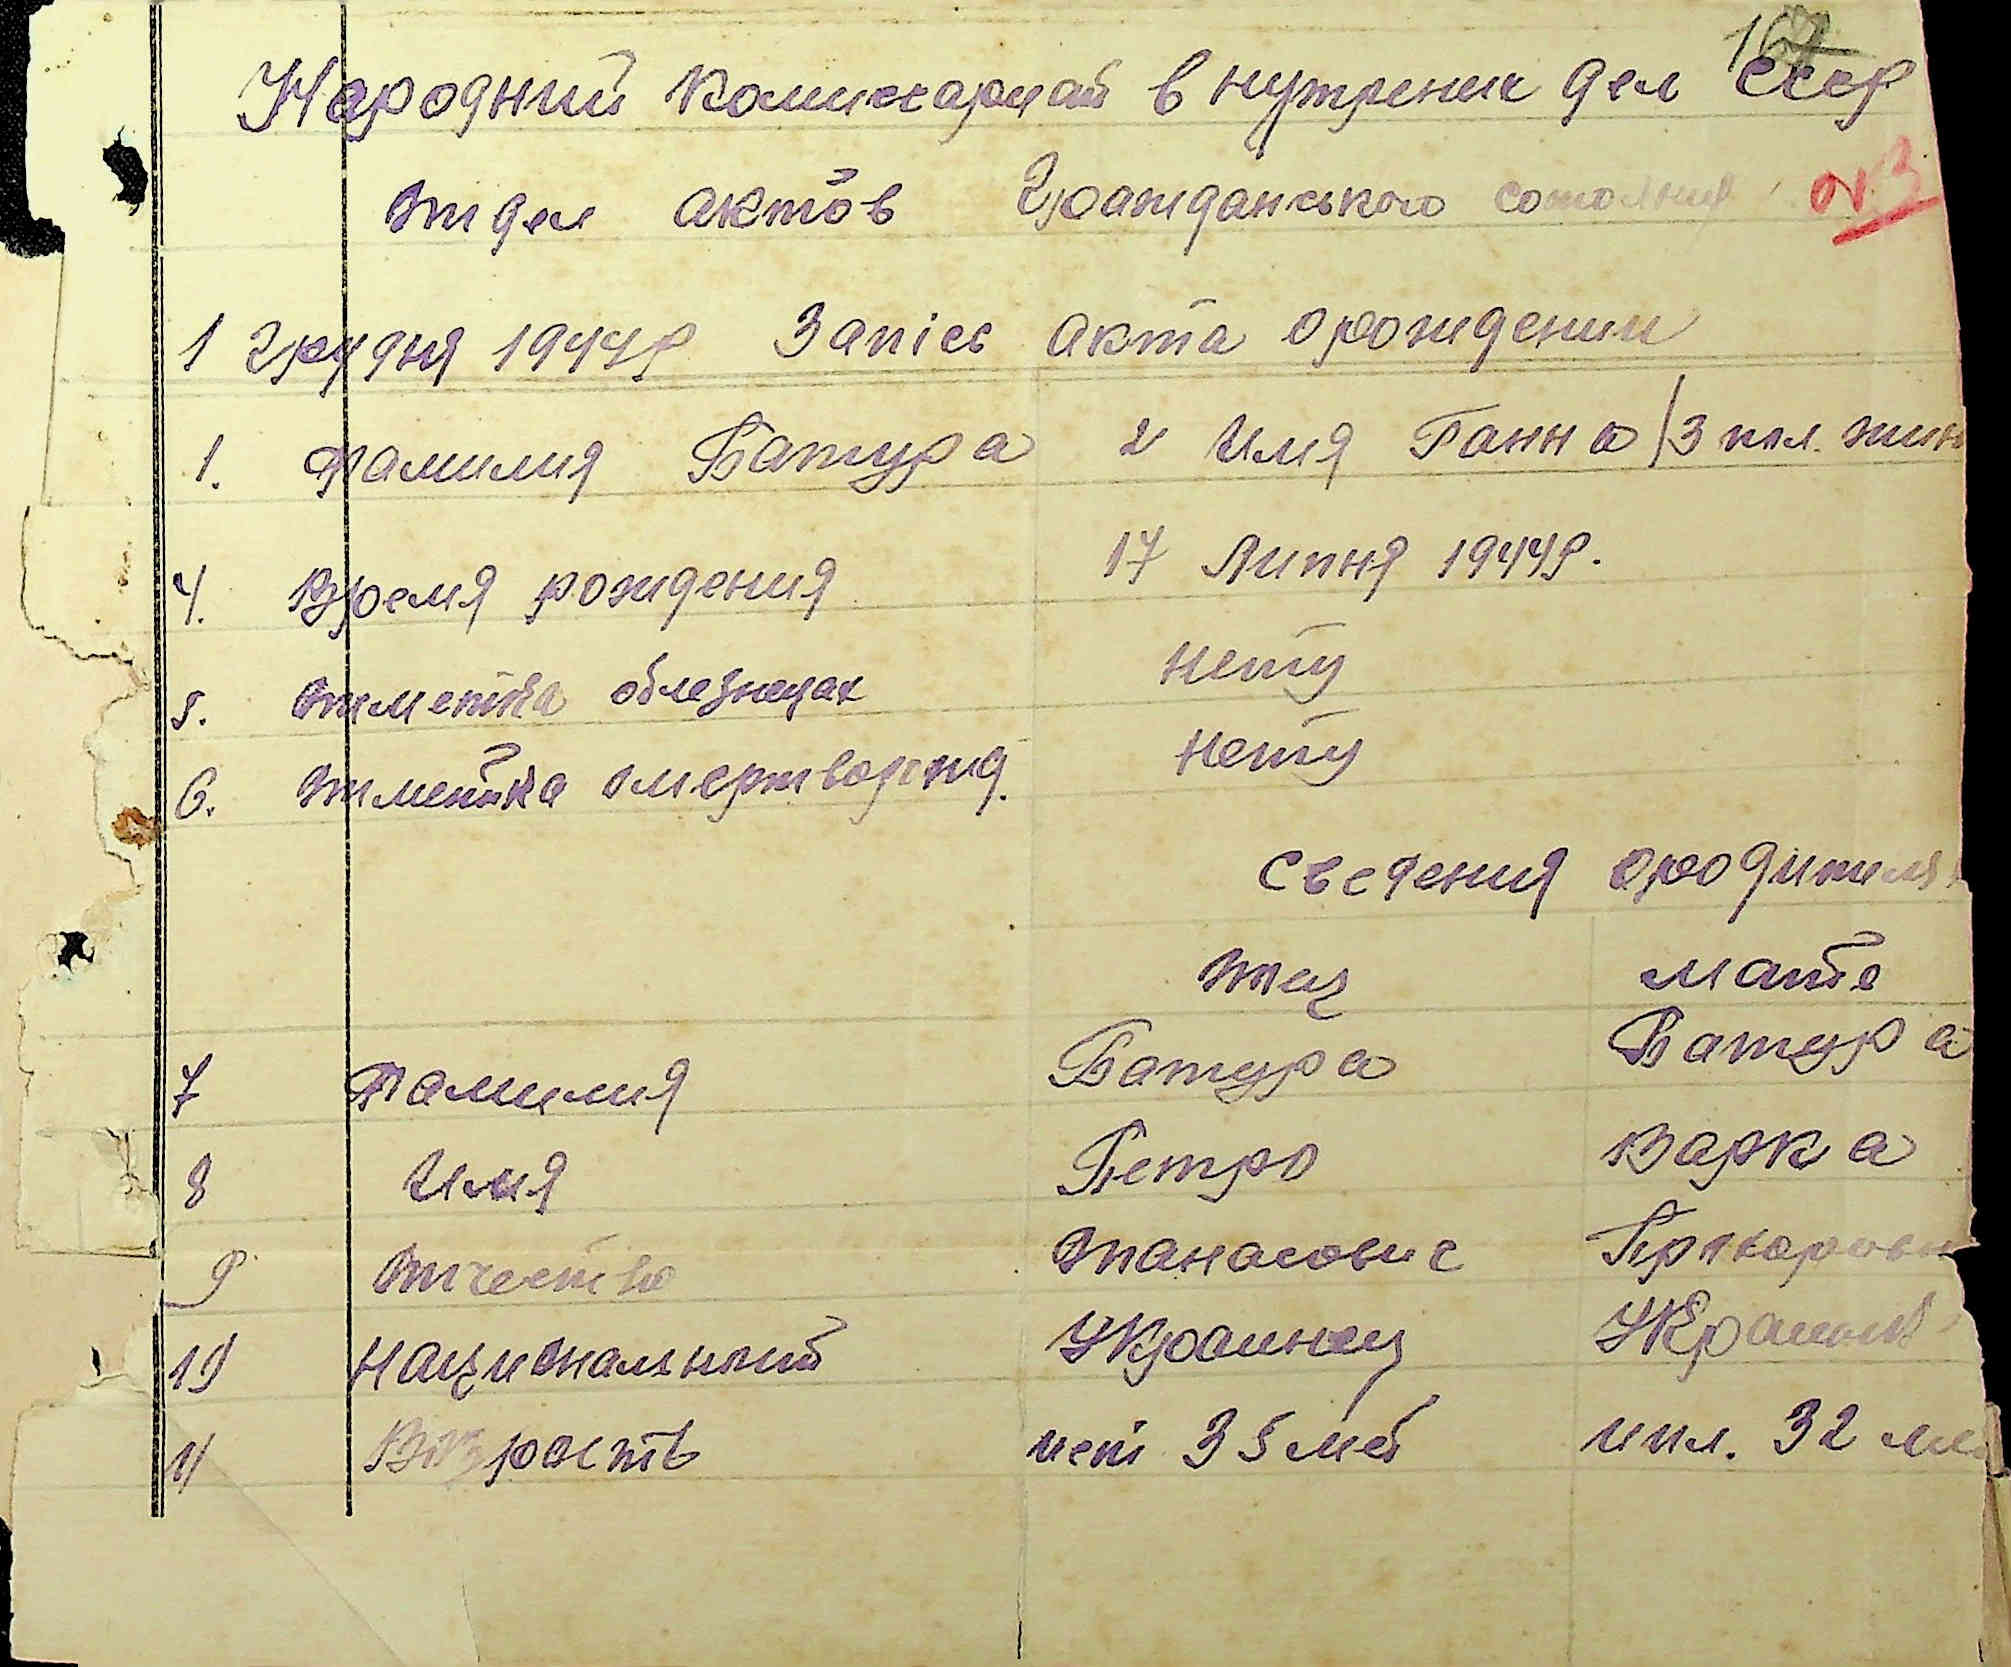 Народний Комиссариат внутрених дел СССР
Отдел актов Гражданського состояния №3
1 Грудня 1944р Запісс акта орождении
1. Фамилия Батура 2 Имя Ганна / 3 пол. жин
4. Время рождения 17 Липня 1944р.
5. Отметка облезнецах нету
6. Отметка омертворожд. нету
Сведения ородителях
Отец мате
7 Фамилия Батура Батура
8 Имя Петро Варка
9 Отчество Опанасовис Прокоровн
10 Украинец
11 Возрасть 35 лет 32